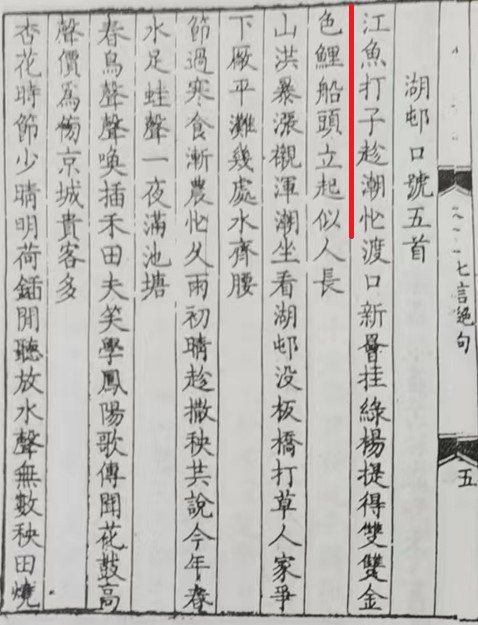 七言絕句
五
湖邨口號五首
江魚打子趁潮忙渡口新罾挂綠楊提得雙雙金
色鯉船頭立起似人長
山洪暴漲觀渾潮坐看湖邨没板橋打草人家爭
下厰平灘幾處水齊腰
節過寒食漸農忙久雨初晴趁撒秧共說今年春
水足蛙聲一夜滿池塘
春鳥聲聲喚插禾田夫笑學鳳陽歌傳聞花鼓高
聲價為傍京城貴客多
杏花時節少晴明荷鍤閒聽放水聲無數秧田燒